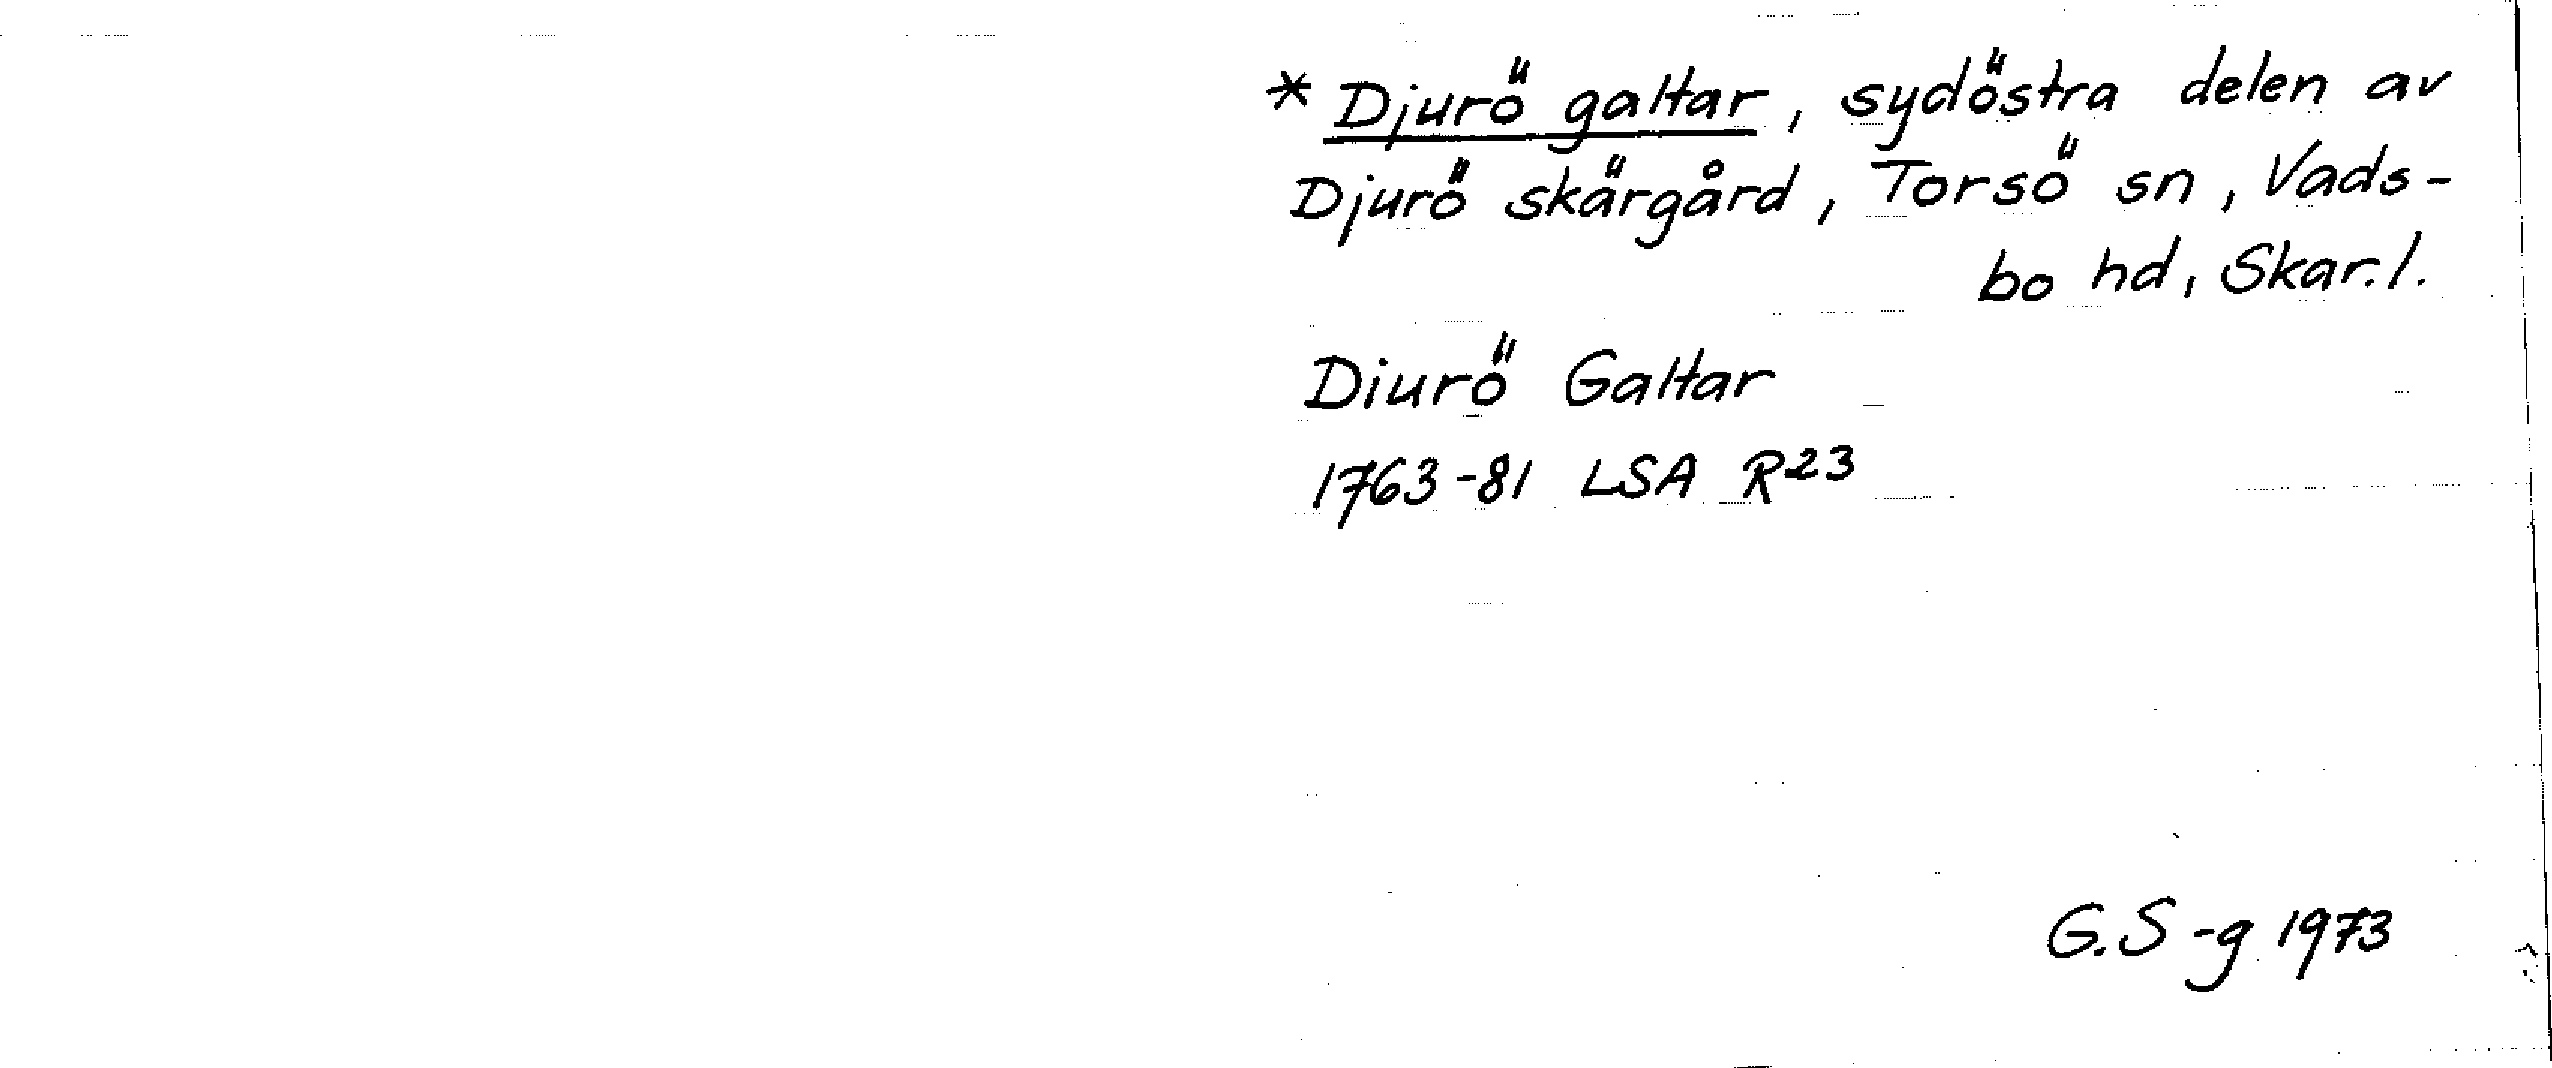 * Djurö galtar, sydöstra delen av
Djurö skärgård, Torsö sn, Vads-
bo hd, Skar.l.
Diurö Galtar
1763-81 LSA R23
G.S-g 1973